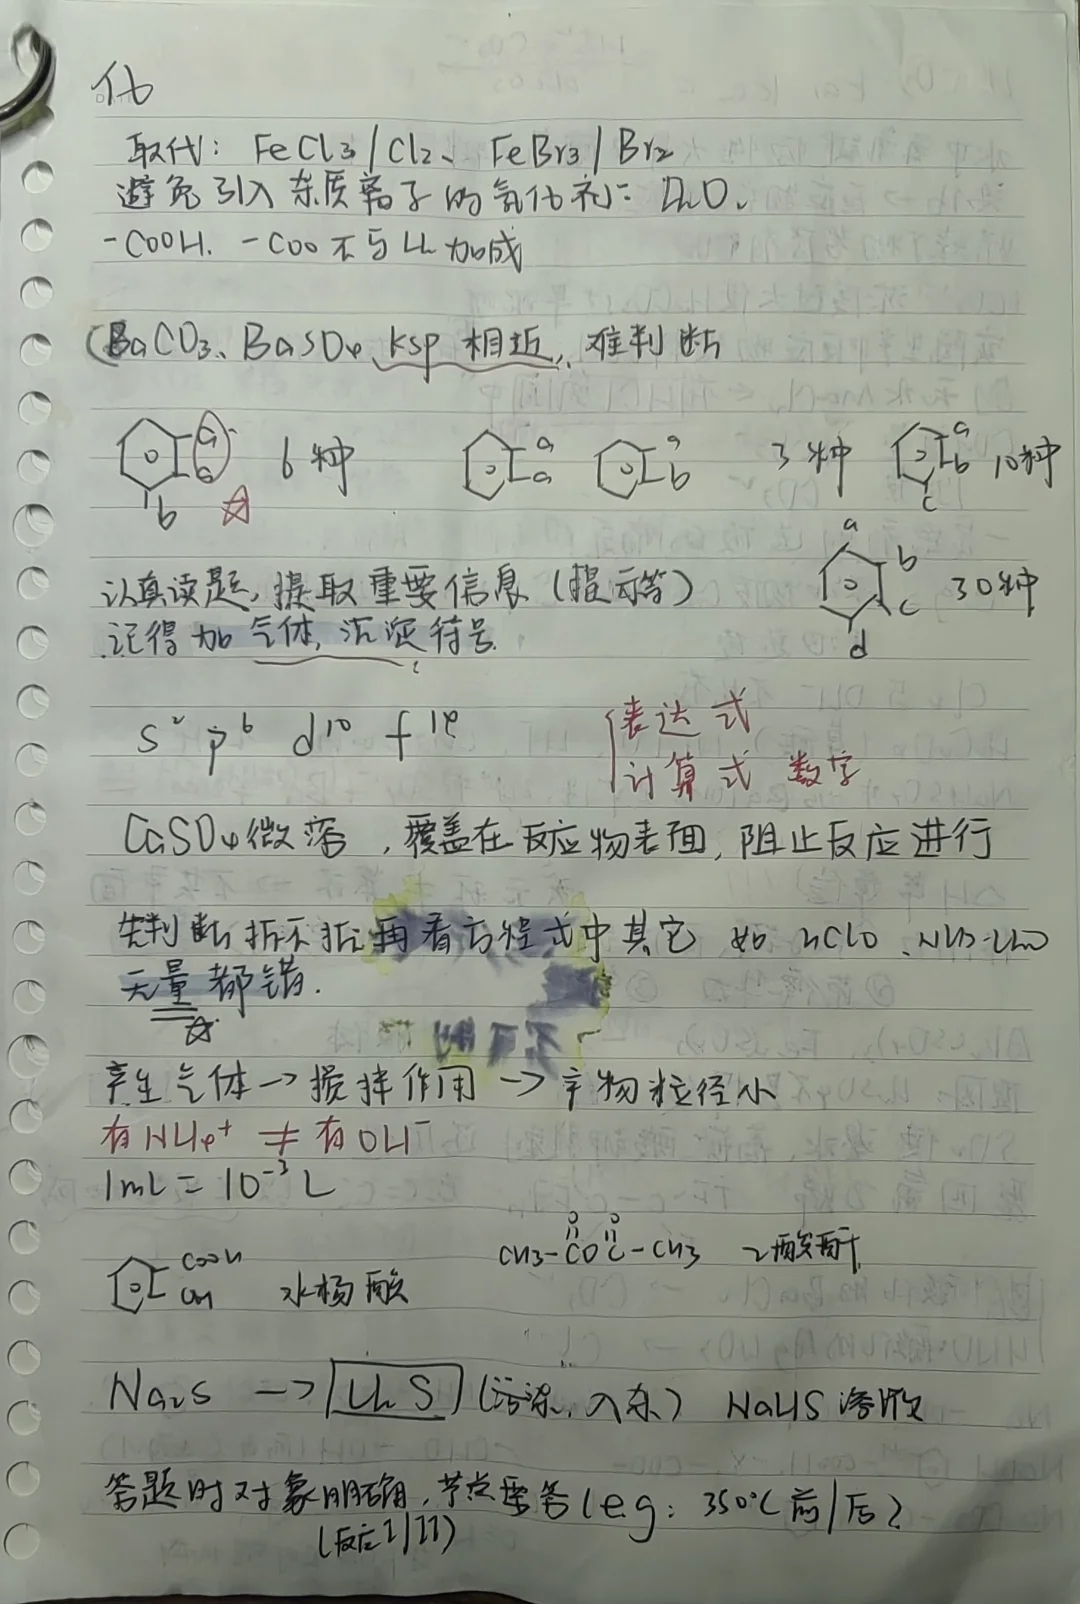 化
取代: FeCl3/Cl2、FeBr3/Br2
避免引入杂质离子的氧化剂: H2O2
-COOH. -COO不与H2加成
(BaCO3、BaSO4 Ksp 相近, 难判断
a a b 6种 a a a b 3种 a b c 10种
a b c d 30种
认真读题, 提取重要信息 (提示等)
记得加气体, 沉淀符号
s² p⁶ d¹⁰ f¹⁴
表达式
计算式 数字
CaSO4微溶, 覆盖在反应物表面, 阻止反应进行
先判断拆不拆, 再看方程式中其它 如 HClO、NH3·H2O
无量都错.
产生气体→搅拌作用→产物粒径小
有NH4⁺ ≠ 有OH⁻
1mL = 10⁻³ L
COOH OH 水杨酸
O O
CH3-COC-CH3 乙酸酐
Na2S → H2S (污染, 入杂) NaHS溶液
答题时对象明确, 节点要答 (e.g: 350℃前/后)
(反应I/II)